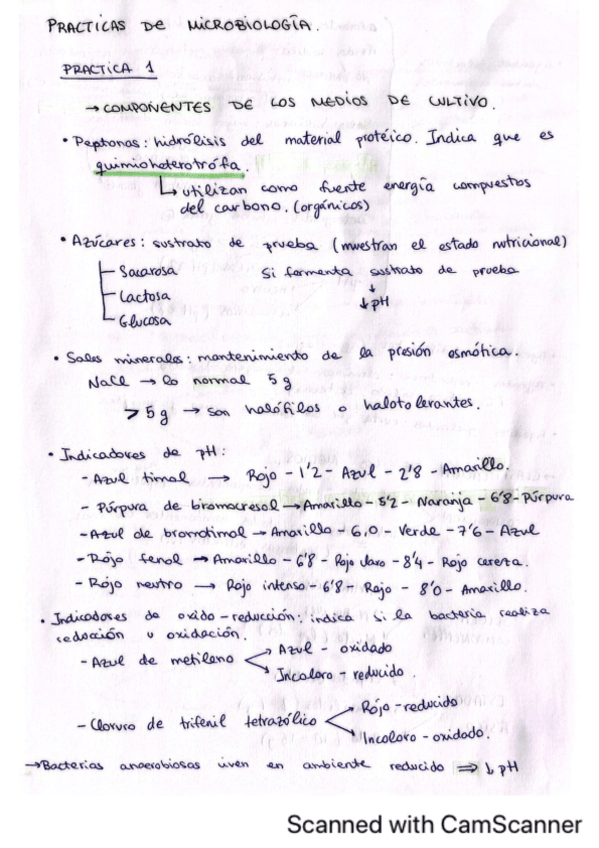 PRACTICAS DE MICROBIOLOGÍA.
PRACTICA 1
→ COMPONENTES DE LOS MEDIOS DE CULTIVO.
• Peptonas: hidrólisis del material protéico. Indica que es
quimioheterotrófa.
↳ utilizan como fuente energía compuestos
del carbono. (orgánicos)
• Azúcares: sustrato de prueba (muestran el estado nutricional)
Sacarosa Si formenta sustrato de prueba
Lactosa ↓
↓pH
Glucosa
• Sales minerales: mantenimiento de la presión osmótica.
NaCl → lo normal 5 g
> 5 g → son halófilos o halotolerantes.
• Indicadores de pH:
- Azul timol → Rojo - 1'2 - Azul - 2'8 - Amarillo.
- Púrpura de bromocresol → Amarillo - 5'2 - Naranja - 6'8 - Púrpura
- Azul de bromotimol → Amarillo - 6,0 - Verde - 7'6 - Azul
- Rojo fenol → Amarillo - 6'8 - Rojo claro - 8'4 - Rojo cereza.
- Rojo neutro → Rojo intenso - 6'8 - Rojo - 8'0 - Amarillo.
• Indicadores de oxido-reducción: indica si la bacteria realiza
redocción u oxidación.
- Azul de metileno < Azul - oxidado
Incoloro - reducido.
- Cloruro de trifenil tetrazólico < Rojo - reducido
Incoloro - oxidado.
→ Bacterias anaerobiosas viven en ambiente reducido ⇒ ↓ pH
Scanned with CamScanner